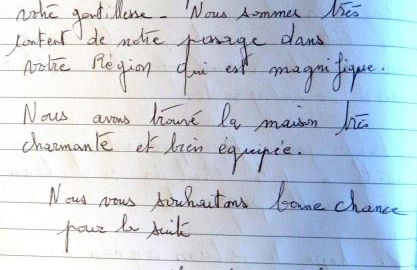 votre gentillesse - Nous sommes très
content de notre passage dans
votre Région qui est magnifique.
Nous avons trouvé la maison très
charmante et bien équipée.
Nous vous souhaitons bonne chance
pour la suite